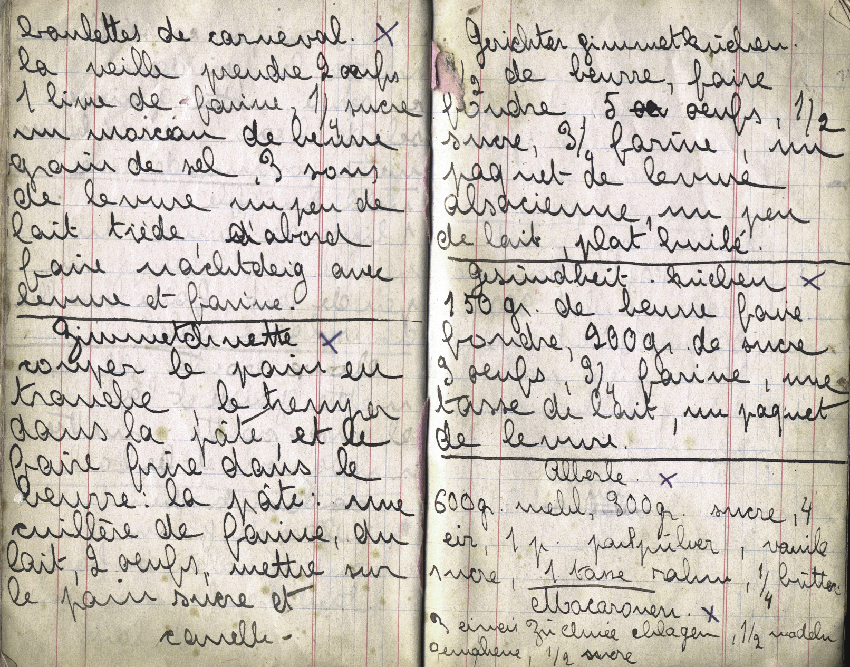 boulettes de carneval. x
la veille prendre 2 oeufs
1 livre de farine, 1/4 sucre
un morceau de beurre
grain de sel, 3 sous
de levure un peu de
lait tiède d'abord
faire nachtdeig avec
levure et farine.
Zimmetchnette x
couper le pain en
tranche, le tremper
dans la pâte, et le
faire frire dans le
beurre: la pâte: une
cuillère de farine, du
lait, 2 oeufs, mettre sur
le pain sucre et
cannelle -
Grichter zimmetküchen.
1/2 de beurre, faire
fondre, 5 oeufs, 1/2
sucre, 3/4 farine, un
paquet de levure
alsacienne, un peu
de lait, plat huilé.
Gesundheit. küchen x
150 gr. de beurre faire
fondre, 200 gr. de sucre
3 oeufs, 3/4 farine, une
tasse de lait, un paquet
de levure.
Alberle. x
600 gr. mehl, 300 gr. sucre, 4
eir, 1 p. pakpulver, vanile
sucre, 1 tasse rahm, 1/4 butter
Macaronen. x
3 eiweis zu chnée chlagen, 1/2 madeln
gemahlene, 1/2 sucre